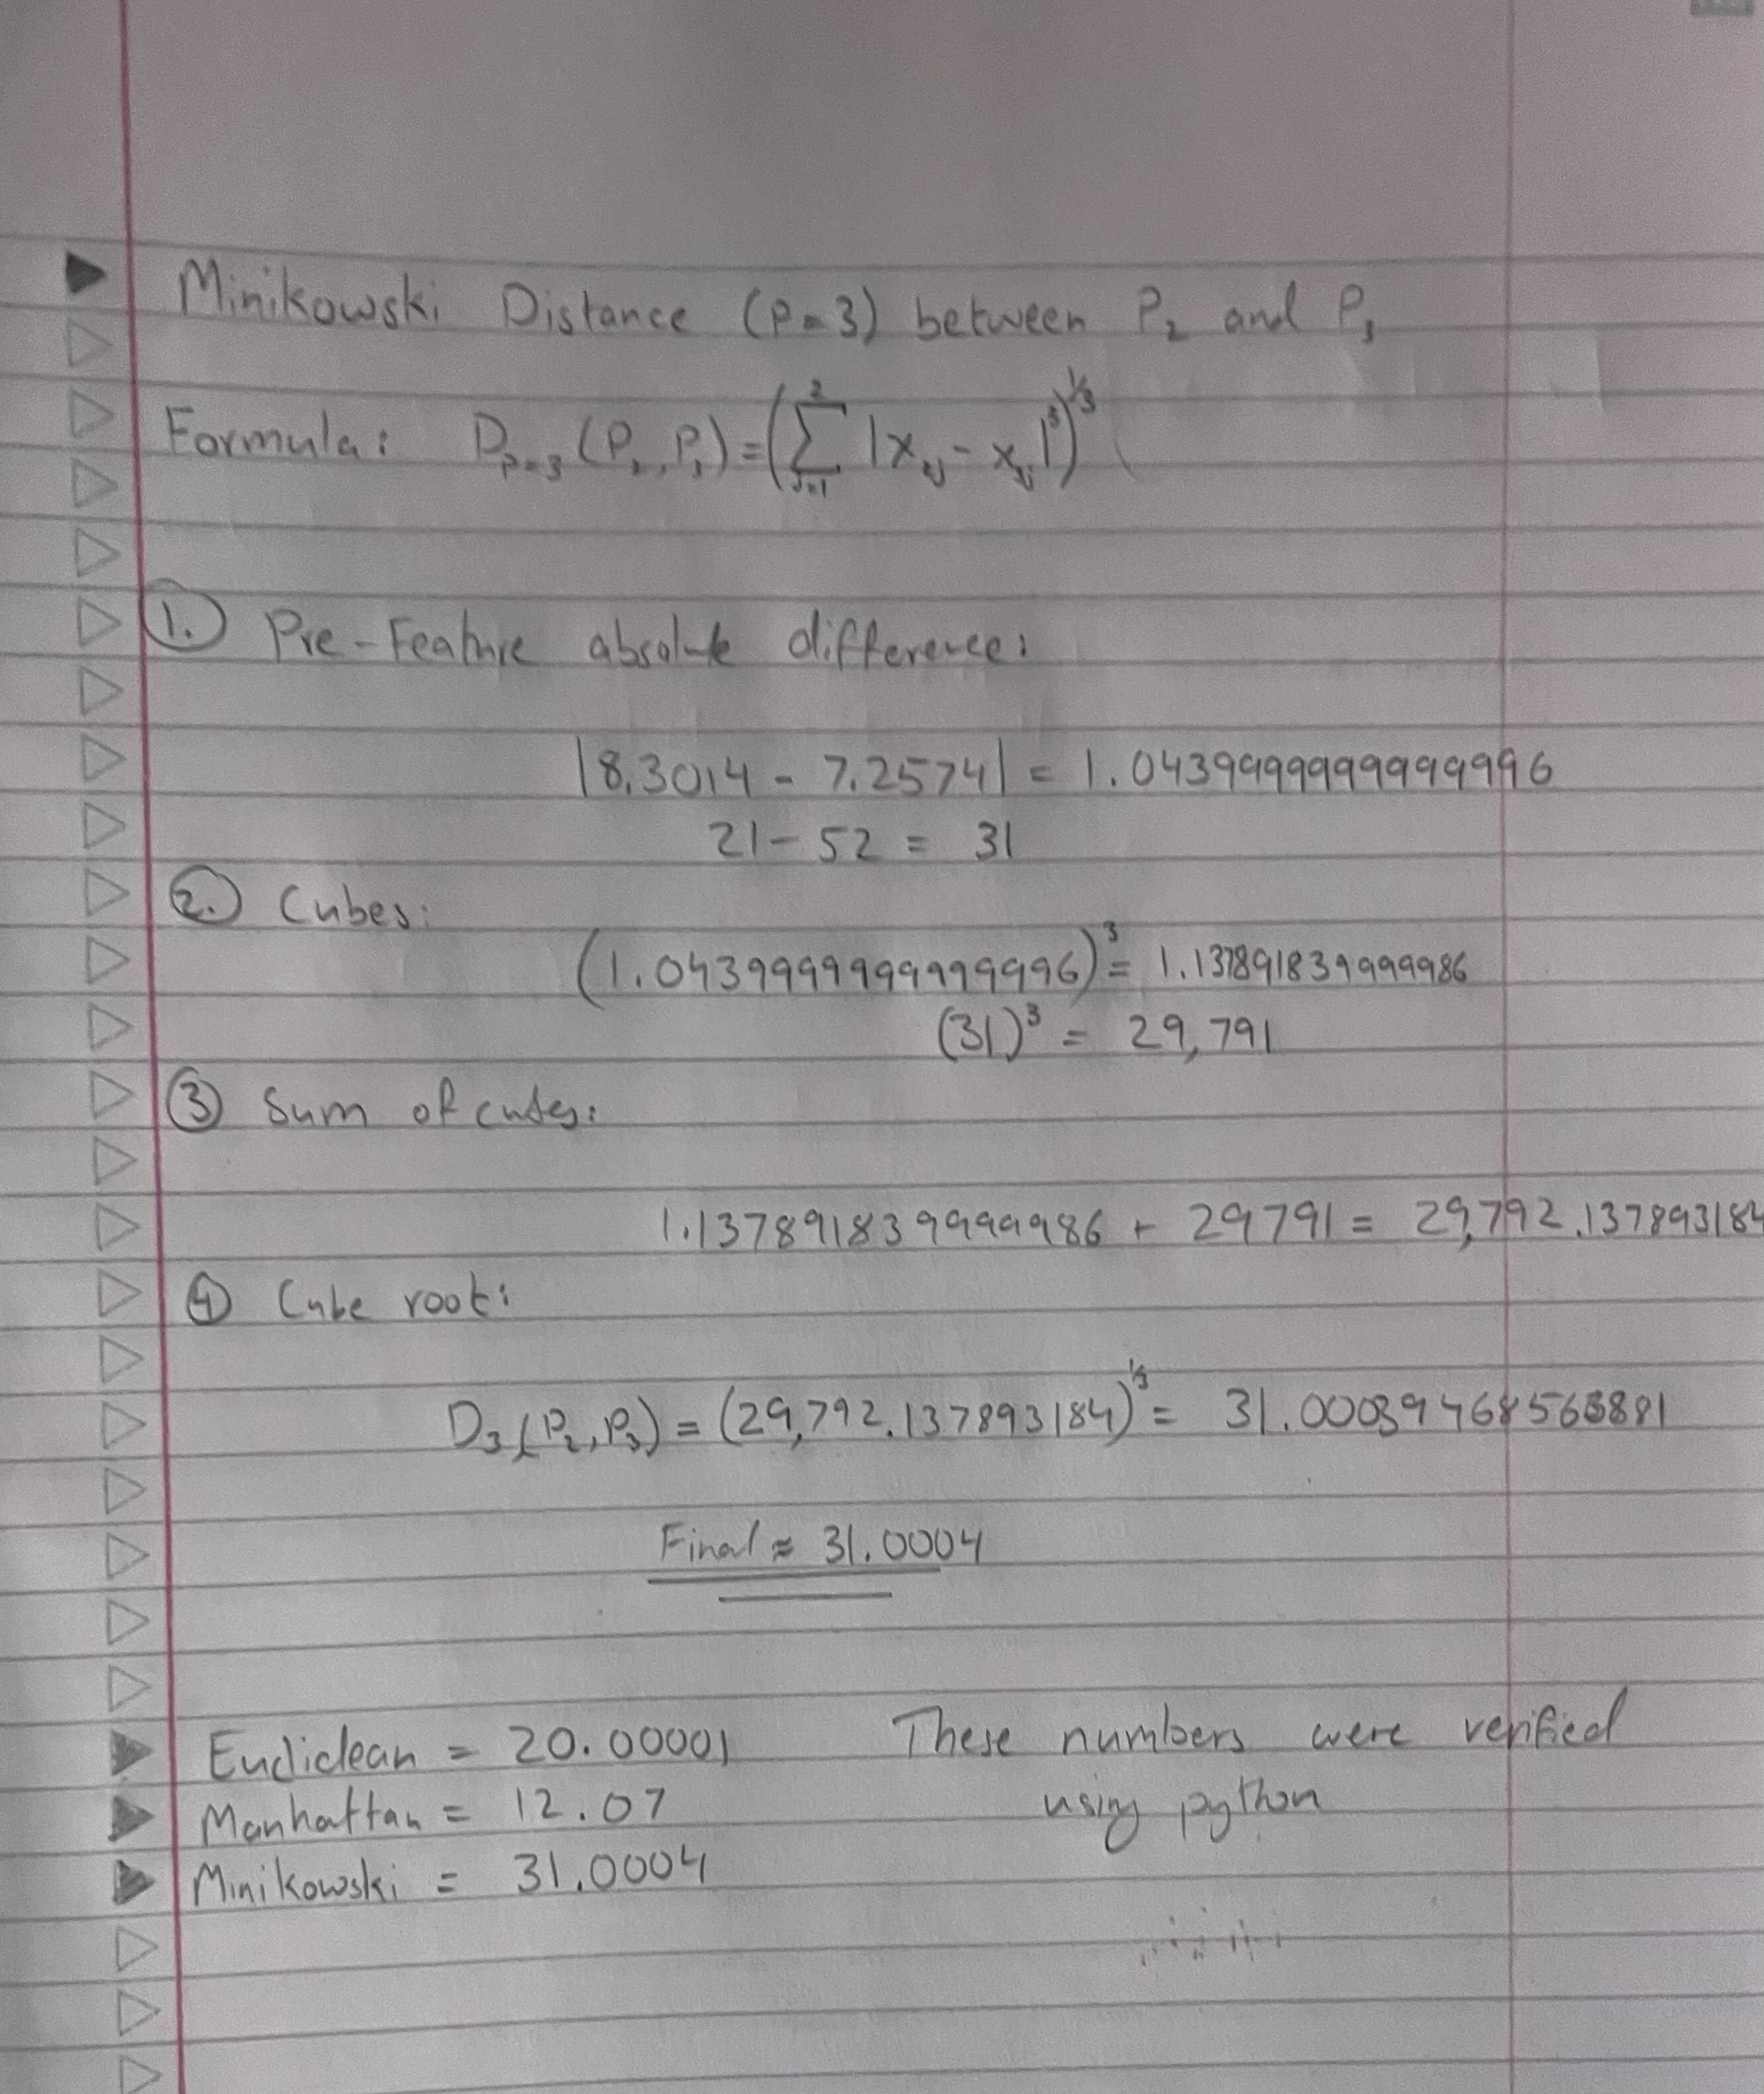 Minikowski Distance (P=3) between P₂ and P₃
Formula: D_{P=3} (P₂, P₃) = (∑_{j=1}^{2} |x_{2j} - x_{3j}|³)^{1/3}
1. Pre-Feature absolute difference:
|8.3014 - 7.2574| = 1.0439999999999996
21 - 52 = 31
2. Cubes:
(1.0439999999999996)³ = 1.137891839999986
(31)³ = 29,791
3 Sum of cubes:
1.1378918399999986 + 29791 = 29,792.137893184
4 Cube root:
D₃(P₂, P₃) = (29,792.137893184)^{1/3} = 31.00039468563881
Final ≈ 31.0004
Eudiclean = 20.00001 These numbers were verified
Manhattan = 12.07 using python
Minikowski = 31.0004